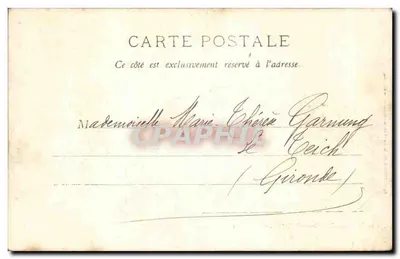 CARTE POSTALE
Ce côté est exclusivement réservé à l'adresse.
Mademoiselle Marie-Thérèse Garnung
CPAPHIL
Le Teich
(Gironde)